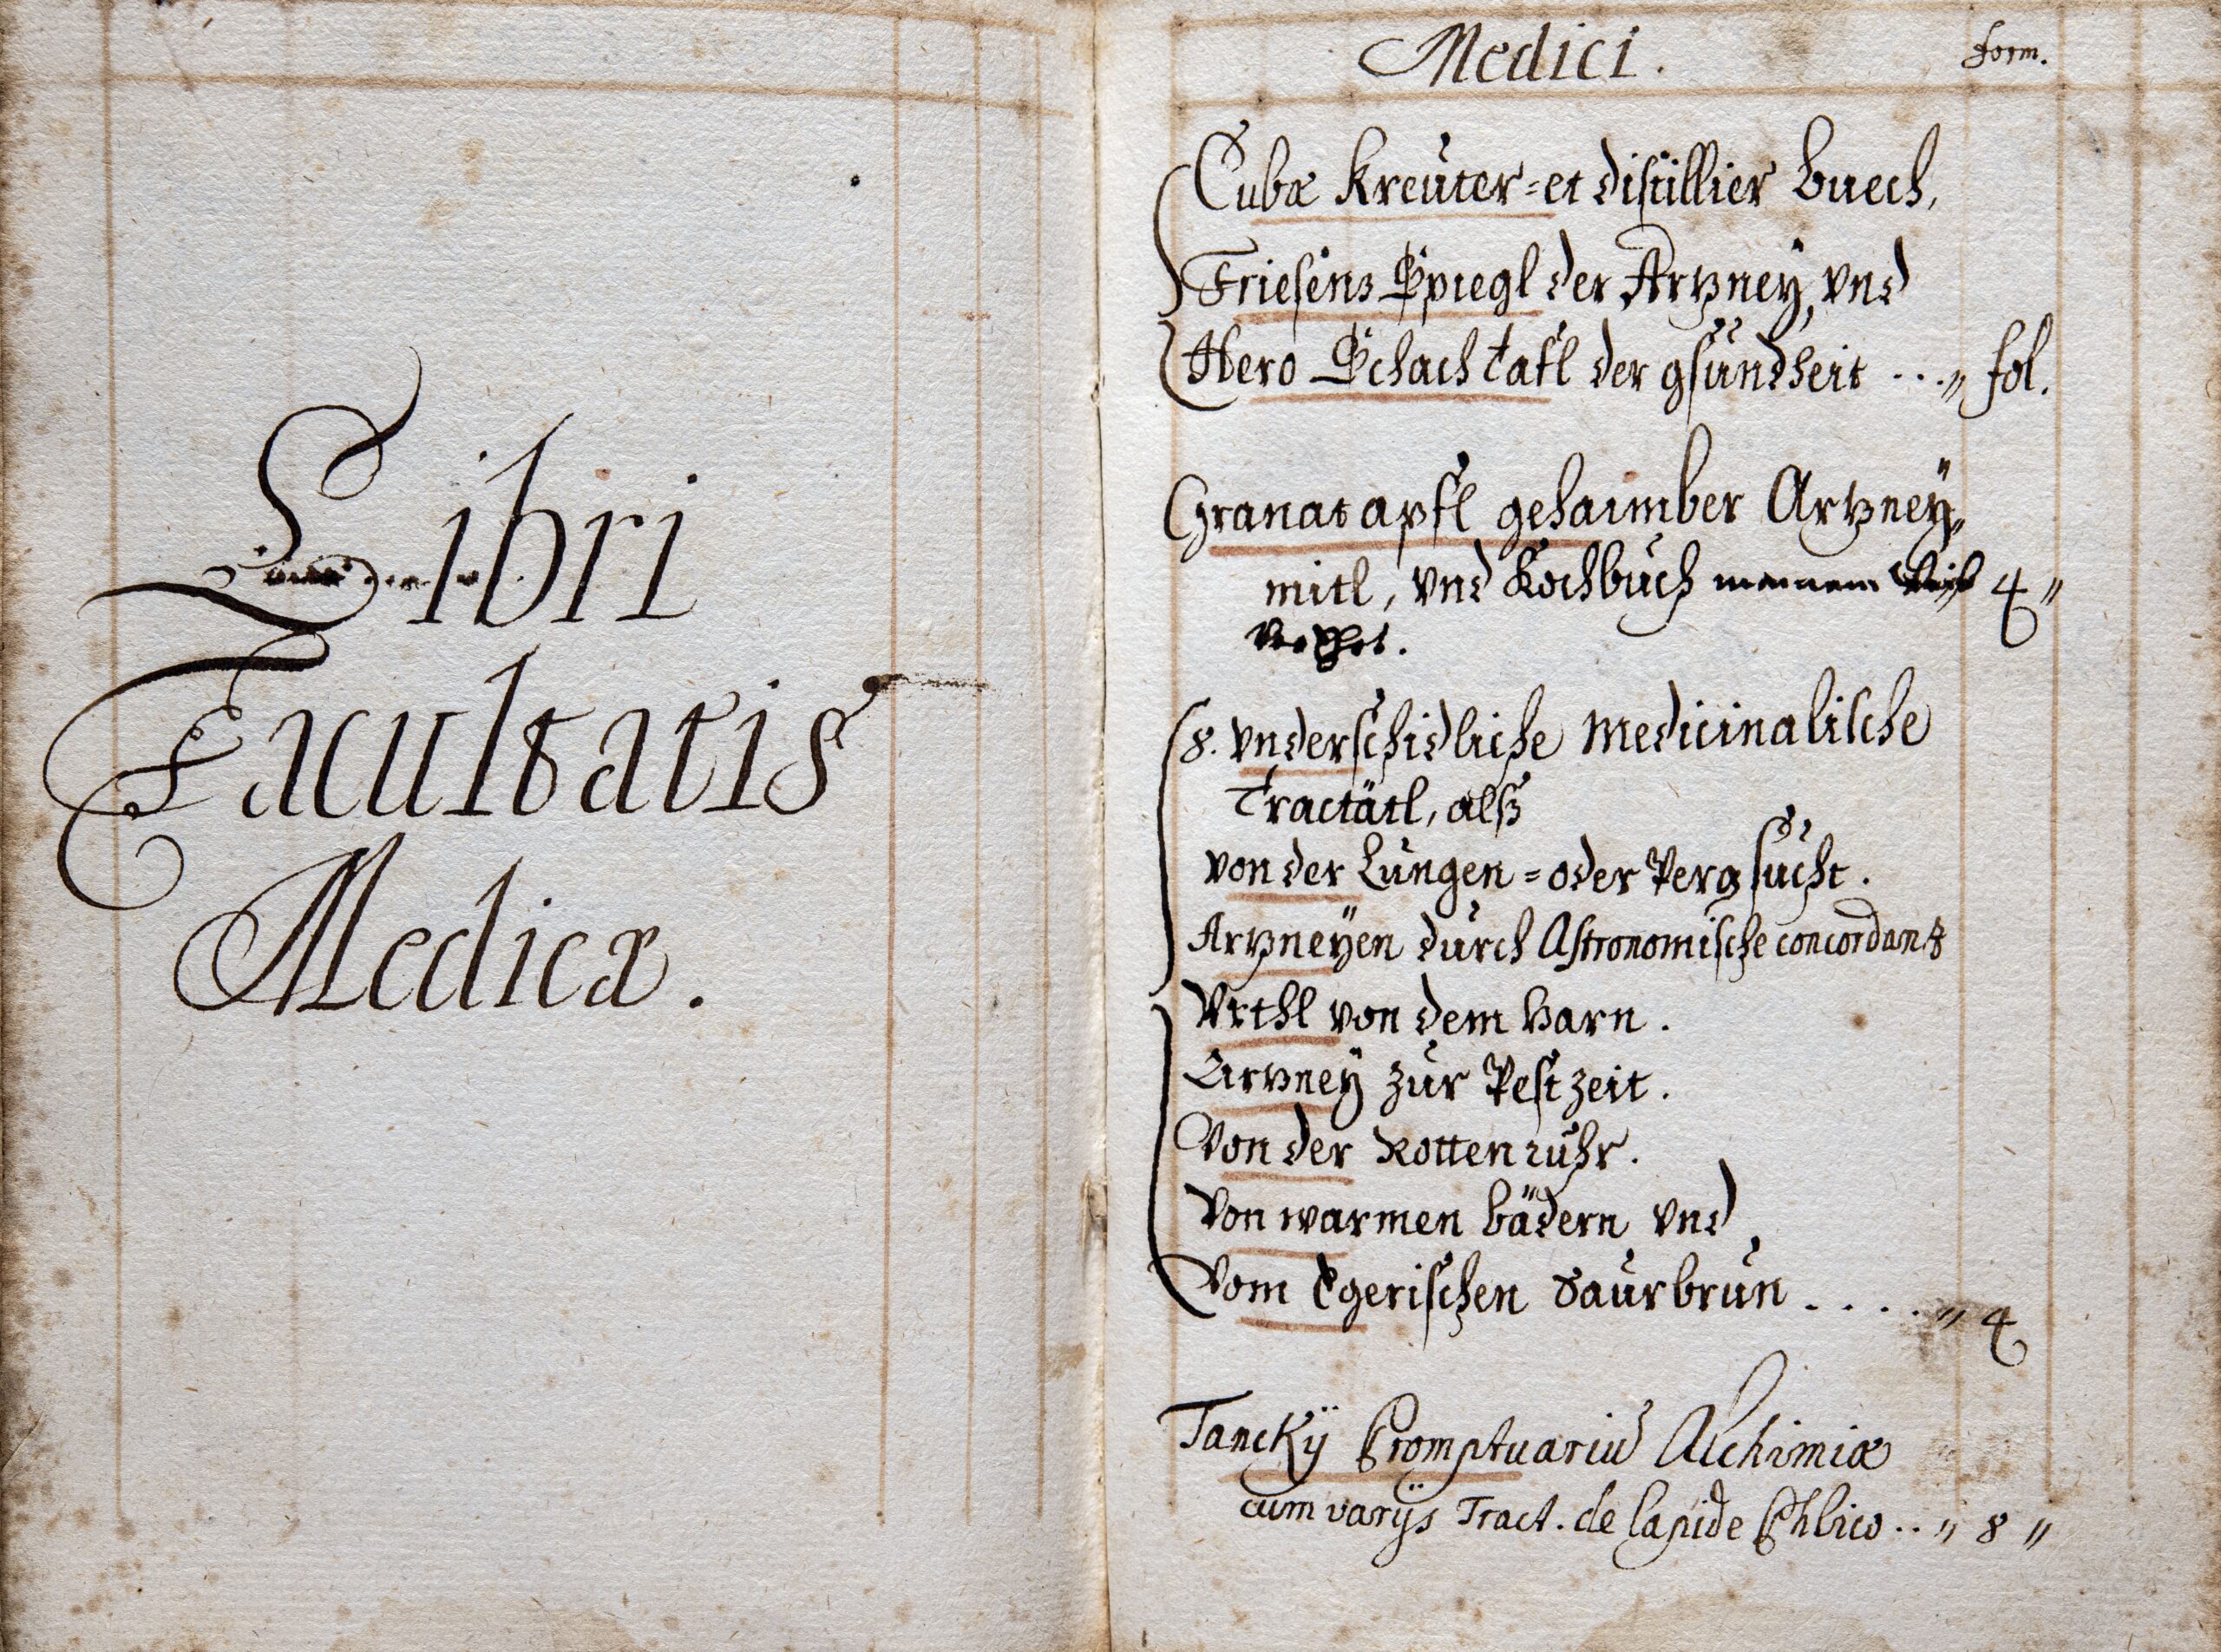 Libri
Facultatis
Medicæ.
Medici.
form.
Cubæ Kreüter=et distillier buech,
Friesens Spiegl der Artzneÿ, vnd
Hero Schachtafl der gsündheit ... „ fol.
Granatapfl gehaimber Artzneÿ„
mitl, vnd Kochbüch 4 „
8. vnderschidliche Medicinalische
Tractätl, alß
von der Lüngen=oder Pergsücht.
Artzneÿen dürch Astronomische concordantz
Vrthl von dem harn.
Artzneÿ zür Pestzeit.
Von der Rotten rühr.
Von warmen bädern vnd
Vom Egerischen Saürbrün .... „ 4
Tanckÿ Promptuariũ Alchimiæ
cum varÿs Tract. de lapide Phlico .. „ 8 „